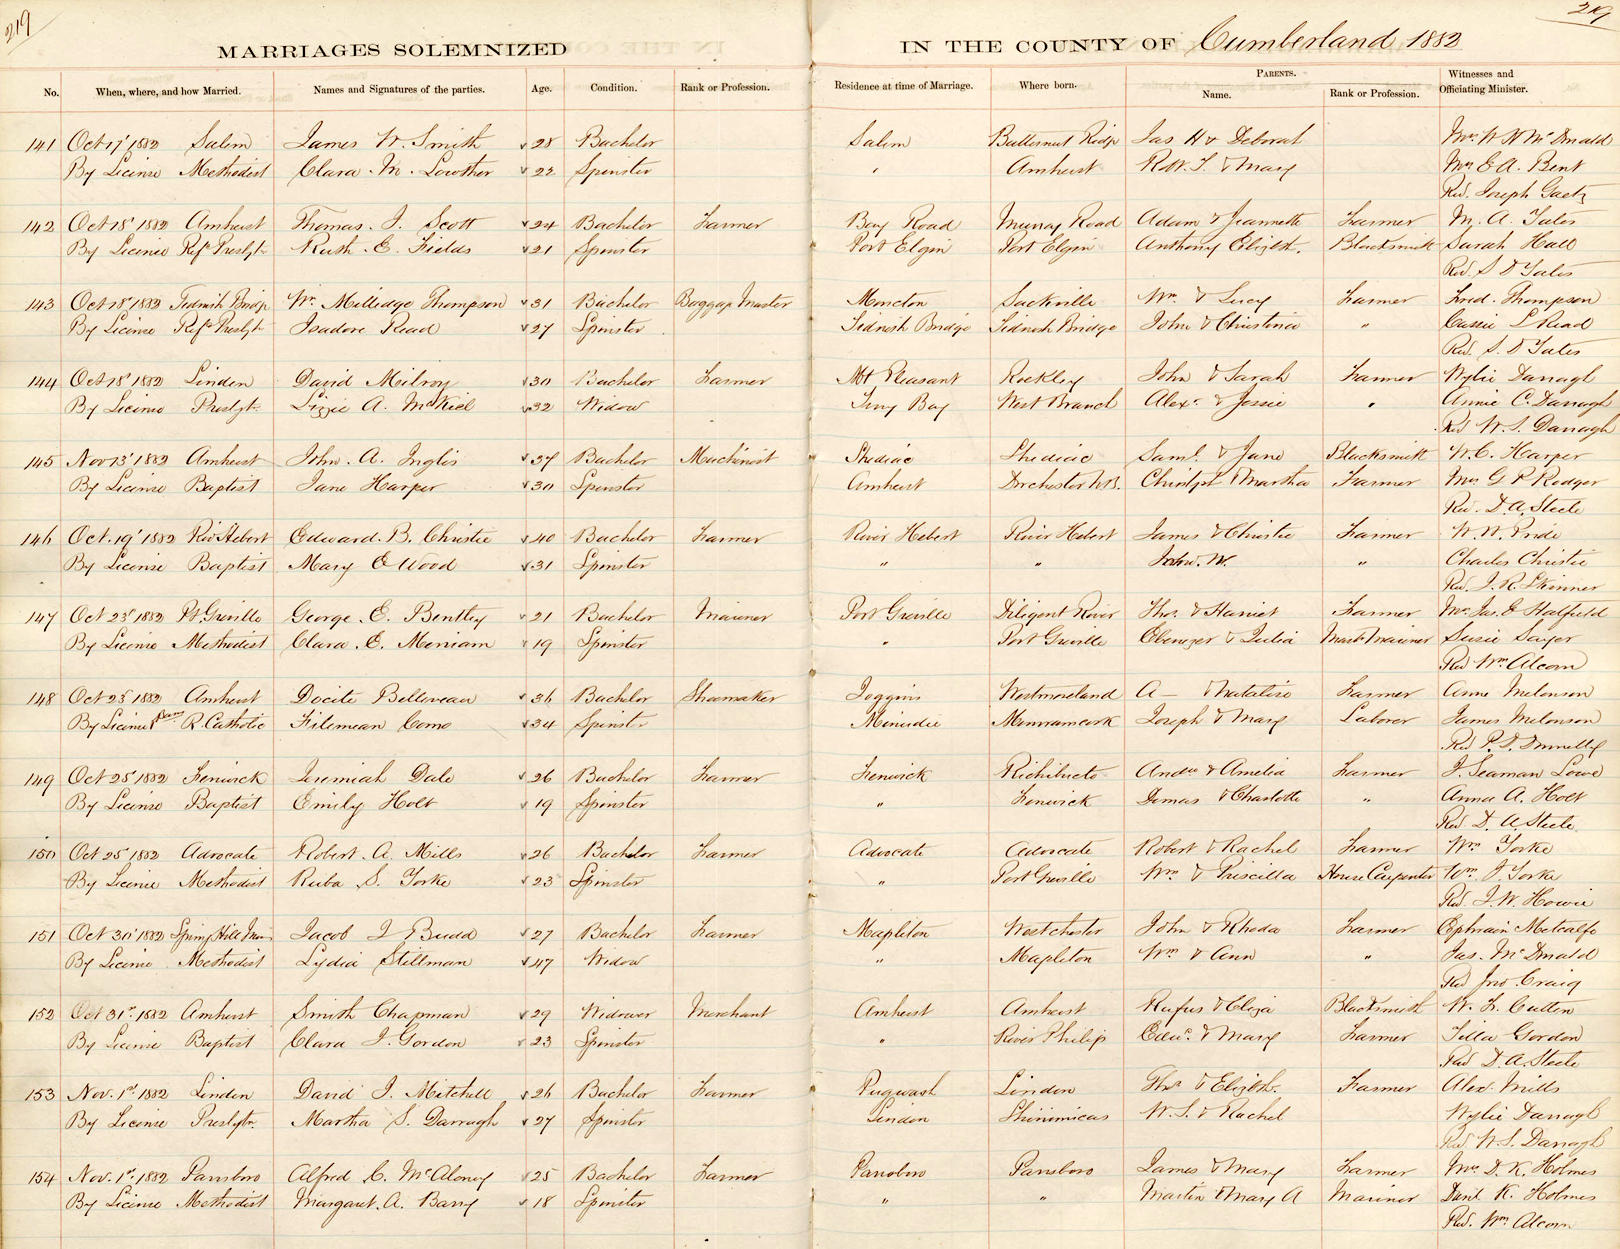 219
219
MARRIAGES SOLEMNIZED IN THE COUNTY OF Cumberland 1882
No. When, where, and how Married. Names and Signatures of the parties. Age. Condition. Rank or Profession. Residence at time of Marriage. Where born. PARENTS. Name. Rank or Profession. Witnesses and Officiating Minister.
141 Oct 17' 1882 Salem James W. Smith 28 Bachelor Salem Butternut Ridge Jas H & Deborah Mrs W N McDonald
By License Methodist Clara M. Lowther 22 Spinster " Amherst Robt. T. & Mary Mrs E A. Bent
Rev. Joseph Gaetz
142 Oct 18' 1882 Amherst Thomas. J. Scott 24 Bachelor Farmer Bay Road Murray Road Adam & Jeannette Farmer M. A. Yates
By License Ref. Presbyt. Ruth E. Fields 21 Spinster Port Elgin Port Elgin Anthony Elizbth. Blacksmith Sarah Hall
Rev. S D Yates
143 Oct 18' 1882 Tidnish Bridge Wm. Milledge Thompson 31 Bachelor Baggage Master Moncton Sackville Wm. & Lucy Farmer Fred. Thompson
By License Ref. Presbyt. Isadore Read 27 Spinster Tidnish Bridge Tidnish Bridge John & Christina " Cassie L Read
Rev. S. D Yates
144 Oct 18' 1882 Linden David Meilroy 30 Bachelor Farmer Mt Pleasant Rockley John & Sarah Farmer Wylie Darragh
By License Presbyt. Lizzie A. McKiel 32 Widow Bay West Branch Alexr. & Jessie " Annie C. Darragh
Rev W. S. Darragh
145 Nov 13' 1882 Amherst John. A. Inglis 27 Bachelor Machinist Shediac Shediac Saml. & Jane Blacksmith W. C. Harper
By License Baptist Jane Harper 30 Spinster Amherst Dorchester N.B. Christph & Martha Farmer Mrs G P Rodger
Rev. D. A. Steele
146 Oct. 19' 1882 Riv Hebert Edward. B. Christie 40 Bachelor Farmer River Hebert River Hebert James & Christie Farmer W. W. Pride
By License Baptist Mary E Wood 31 Spinster " " John. W. " Charles Christie
Rev. J. R. Skinner
147 Oct 23' 1882 Pt Greville George. E. Bentley 21 Bachelor Mariner Port Greville Diligent River Thos & Harriet Farmer Mrs Jas. E Hatfield
By License Methodist Clara. E. Merriam 19 Spinster " Port Greville Ebenezer & Julia Mast. Mariner Susie Sayer
Rev Wm Alcorn
148 Oct 25' 1882 Amherst Docite Belliveau 36 Bachelor Shoemaker Joggins Westmoreland A— & Natalise Farmer Anne Melonson
By License R. Catholic Filimean Como 34 Spinster Minudie Memramcook Joseph & Mary Laborer James Melonson
Rev P. J. Donnelly
149 Oct 25' 1882 Fenwick Jeremiah Dale 26 Bachelor Farmer Fenwick Richibucto Andw & Amelia Farmer J. Seaman Lowe
By License Baptist Emily Holt 19 Spinster " Fenwick Demas & Charlotte " Anna A. Holt
Rev. D. A. Steele
150 Oct 25' 1882 Advocate Robert. A. Mills 26 Bachelor Farmer Advocate Advocate Robert & Rachel Farmer Wm Yorke
By License Methodist Ruba S. Yorke 23 Spinster " Port Greville Wm & Priscilla House Carpenter Wm. J Yorke
Rev. J. W. Howie
151 Oct 30' 1882 Spring Hill Mines Jacob J Budd 27 Bachelor Farmer Mapleton Westchester John & Rhoda Farmer Ephraim Metcalfe
By License Methodist Lydia Stillman 47 Widow " Mapleton Wm & Ann " Jas. McDonald
Rev Jno. Craig
152 Oct 31st. 1882 Amherst Smith Chapman 29 Widower Merchant Amherst Amherst Rufus & Eliza Blacksmith W. F. Cutten
By License Baptist Clara J. Gordon 23 Spinster " River Philip Edwd. & Mary Farmer Tilla Gordon
Rev D. A. Steele
153 Nov. 1st 1882 Linden David J. Mitchell 26 Bachelor Farmer Pugwash Linden Thos & Elizbth. Farmer Alex. Mills
By License Presbytn. Martha S. Darragh 27 Spinster Linden Shinimicas W. S. & Rachel Wylie Darragh
Rev W. S. Darragh
154 Nov. 1st. 1882 Parrsboro Alfred C. McAloney 25 Bachelor Farmer Parrsboro Parrsboro James & Mary Farmer Mrs. D. K. Holmes
By License Methodist Margaret. A. Barry 18 Spinster " " Martin & Mary A Mariner Danl K. Holmes
Rev. Wm. Alcorn